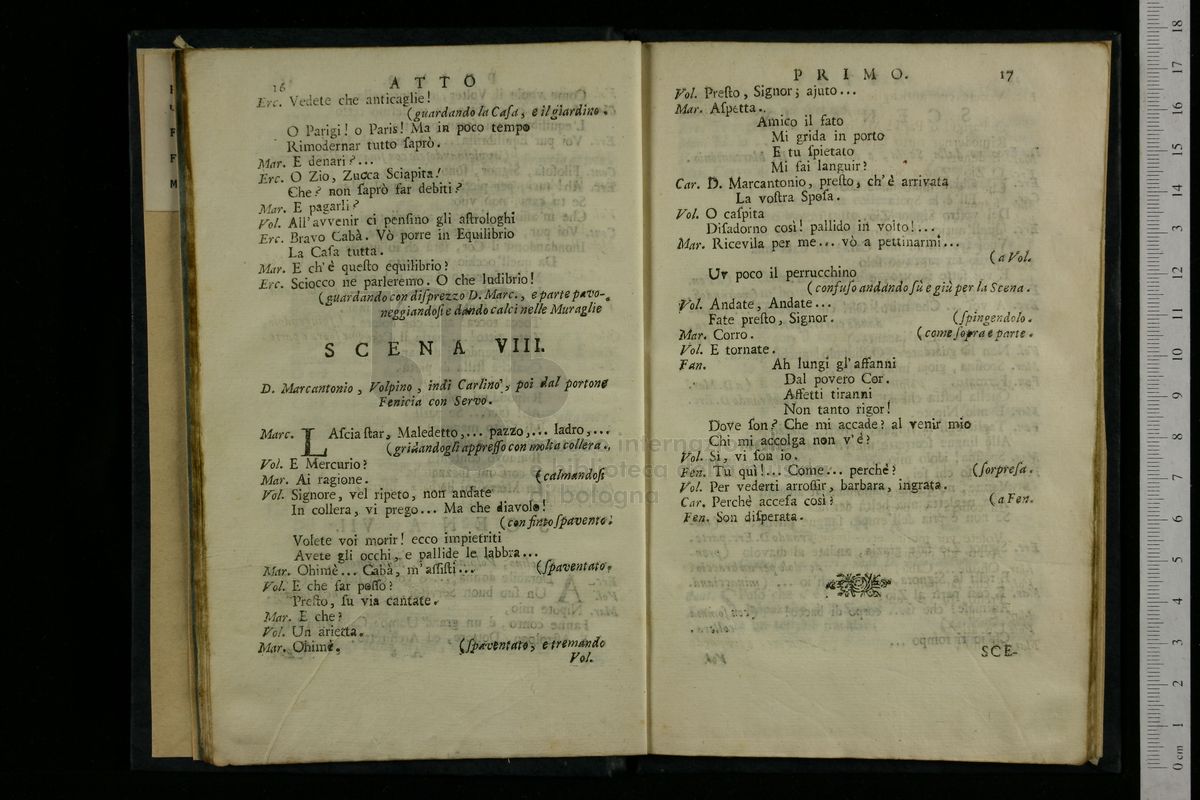 16 ATTO
Erc. Vedete che anticaglie!
(guardando la Caſa, e il giardino.
O Parigi! o Paris! Ma in poco tempo
Rimodernar tutto ſaprò.
Mar. E denari?...
Erc. O Zio, Zucca Sciapita!
Che? non ſaprò far debiti?
Mar. E pagarli?
Vol. All'avvenir ci penſino gli aſtrologhi
Erc. Bravo Cabà. Vò porre in Equilibrio
La Caſa tutta.
Mar. E ch'è queſto equilibrio?
Erc. Sciocco ne parleremo. O che ludibrio!
(guardando con diſprezzo D. Marc., e parte pavo-
neggiandoſi e dando calci nelle Muraglie
SCENA VIII.
D. Marcantonio, Volpino, indi Carlino, poi dal portone
Fenicia con Servo.
Marc. LAſcia ſtar, Maledetto,... pazzo,... ladro,...
(gridandogli appreſſo con molta collera.
Vol. E Mercurio?
Mar. Ai ragione. (calmandoſi
Vol. Signore, vel ripeto, non andate
In collera, vi prego... Ma che diavolo!
(con finto ſpavento.
Volete voi morir! ecco impietriti
Avete gli occhi, e pallide le labbra...
Mar. Ohimè... Cabà, m'aſſiſti... (ſpaventato.
Vol. E che far poſſo?
Preſto, ſu via cantate.
Mar. E che?
Vol. Un arietta.
Mar. Ohimè. (ſpaventato, e tremando
Vol.
PRIMO. 17
Vol. Preſto, Signor; ajuto...
Mar. Aſpetta..
Amico il fato
Mi grida in porto
E tu ſpietato
Mi fai languir?
Car. D. Marcantonio, preſto, ch'è arrivata
La voſtra Spoſa.
Vol. O caſpita
Diſadorno così! pallido in volto!...
Mar. Ricevila per me... vò a pettinarmi...
(a Vol.
Un poco il perrucchino
(confuſo andando ſù e giù per la Scena.
Vol. Andate, Andate...
Fate preſto, Signor. (ſpingendolo.
Mar. Corro. (come ſopra e parte.
Vol. E tornate.
Fan. Ah lungi gl'affanni
Dal povero Cor.
Affetti tiranni
Non tanto rigor!
Dove ſon? Che mi accade? al venir mio
Chi mi accolga non v'è?
Vol. Sì, vi ſon io.
Fen. Tu quì!... Come... perchè? (ſorpreſa.
Vol. Per vederti arroſſir, barbara, ingrata.
Car. Perchè acceſa così? (a Fen.
Fen. Son diſperata.
SCE-